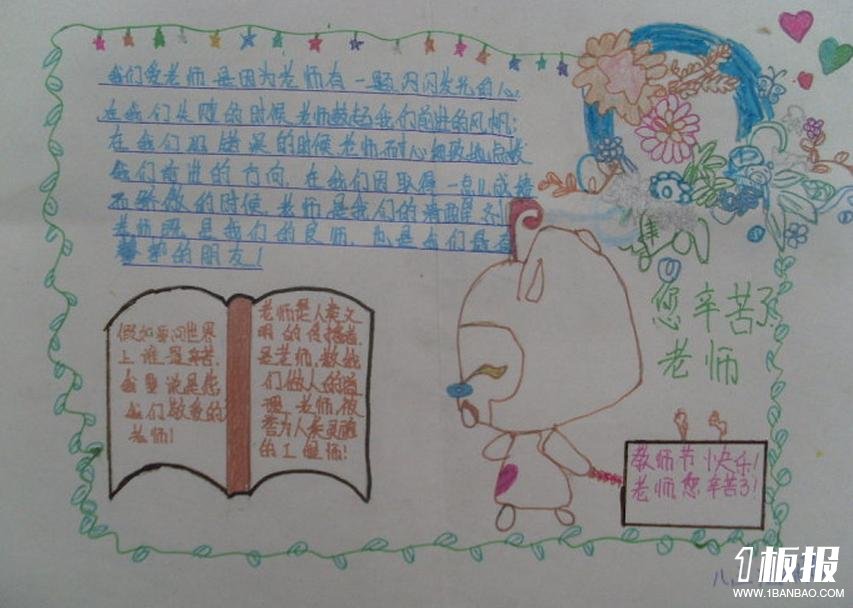 我们爱老师是因为老师有一颗闪闪发光的心,
在我们失的时候老师鼓起我们前进的风帆;
在我们犯错误的时候老师耐心细致地点拨
我们前进的方向,在我们因取得一点儿成绩
而骄傲的时候,老师是我们的清醒剂
老师既是我们的良师,也是我们最
的朋友!
您辛苦了
老师
假如要问世界
上谁最辛苦,
我要说是您
我们敬爱的
老师!
老师是人类文
明的传播者,
是老师,教我
们做人的道
理,老师,被
誉为人类灵魂
的工程师!
教师节快乐!
老师您辛苦了!
1板报
WWW.1BANBAO.COM